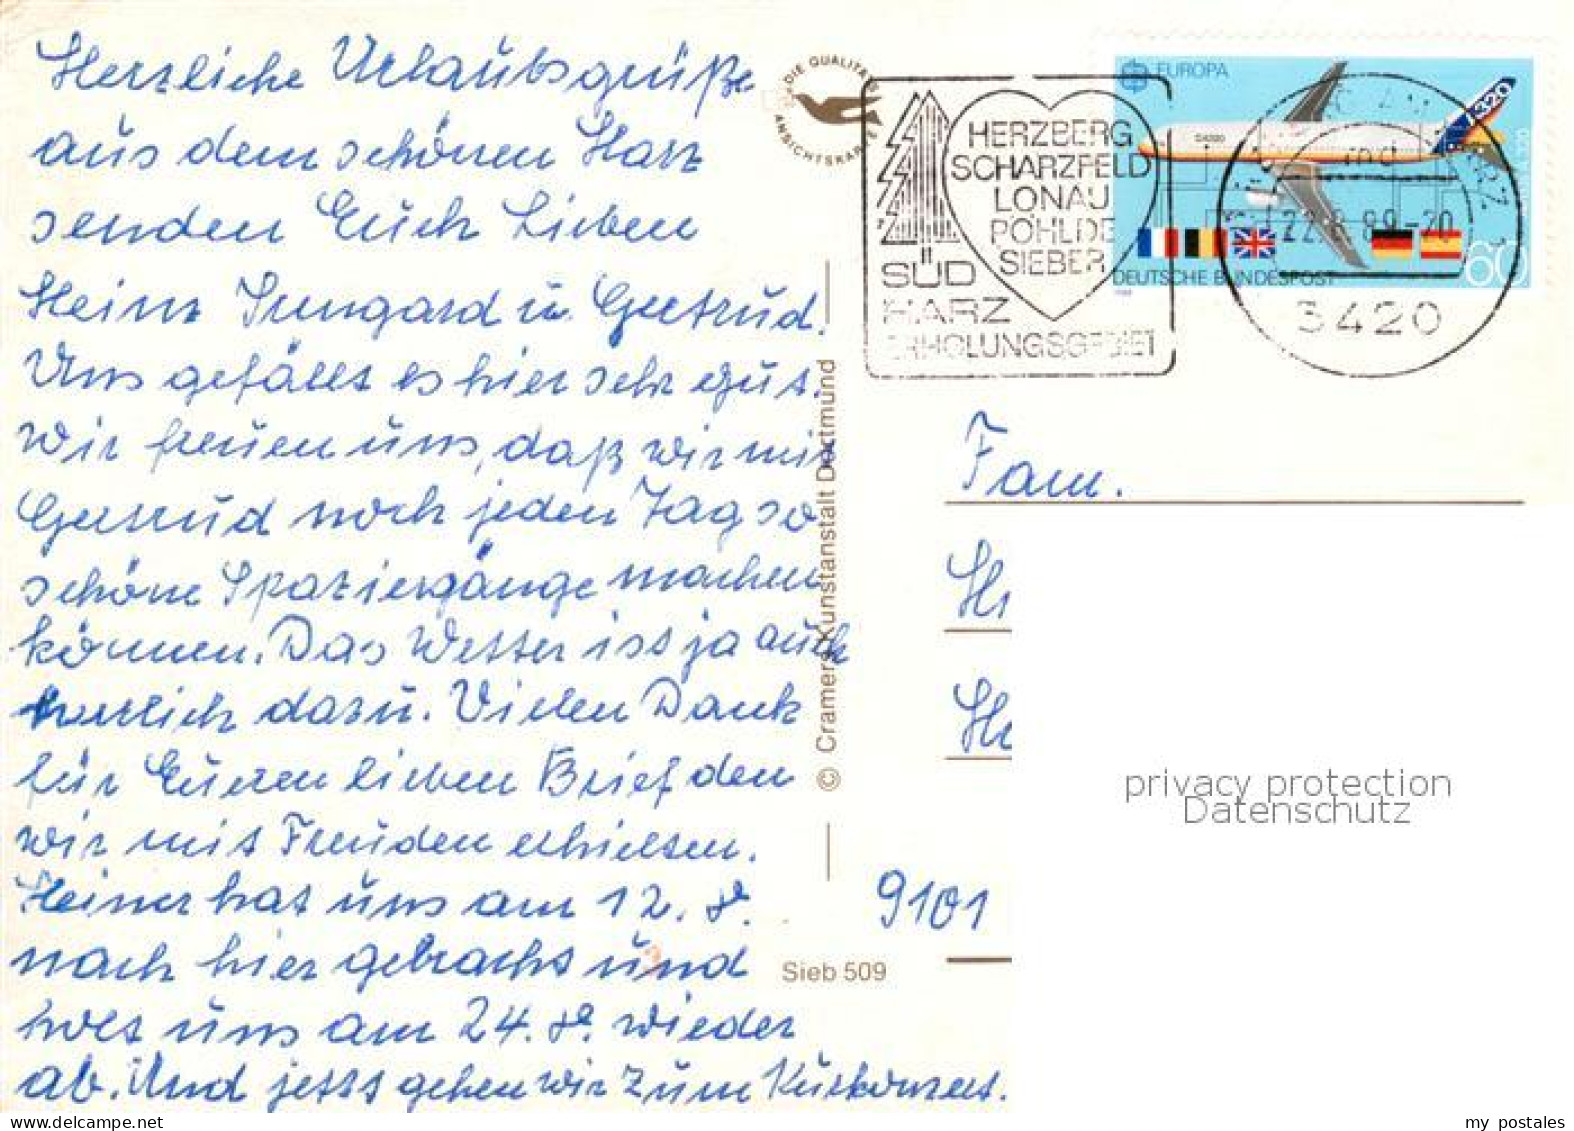 Herzliche Urlaubsgrüße
aus dem schönen Harz
senden Euch Lieben
Heinz Irmgard u. Gertrud.
Uns gefällt es hier sehr gut.
Wir freuen uns, daß wir mit
Gertrud noch jeden Tag so
schöne Spaziergänge machen
können. Das Wetter ist ja auch
herrlich dazu. Vielen Dank
für Eueren lieben Brief den
wir mit Freuden erhielten.
Heiner hat uns am 12. 8.
nach hier gebracht und
holt uns am 24. 8. wieder
ab. Und jetzt gehen wir zum Kurkonzert.
DIE QUALITÄTS
ANSICHTSKARTE
© Cramers Kunstanstalt Dortmund
Sieb 509
HERZBERG
SCHARZFELD
LONAU
PÖHLDE
SIEBER
SÜD
HARZ
ERHOLUNGSGEBIET
EUROPA
320
DEUTSCHE BUNDESPOST
60
22.8.89-20
3420
Fam.
9101
privacy protection
Datenschutz
my postales